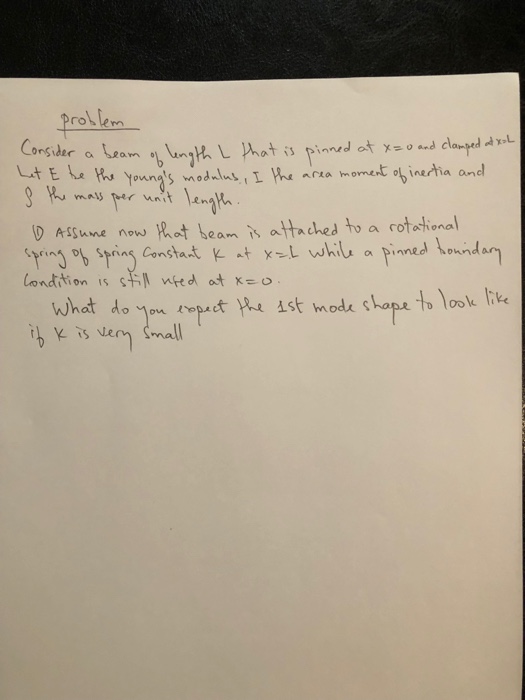 problem
Consider a beam of length L that is pinned at x=0 and clamped at x=L
Let E be the young's modulus, I the area moment of inertia and
ρ the mass per unit length.
① Assume now that beam is attached to a rotational
spring of spring constant K at x=L while a pinned boundary
Condition is still used at x=0.
What do you expect the 1st mode shape to look like
if K is very small